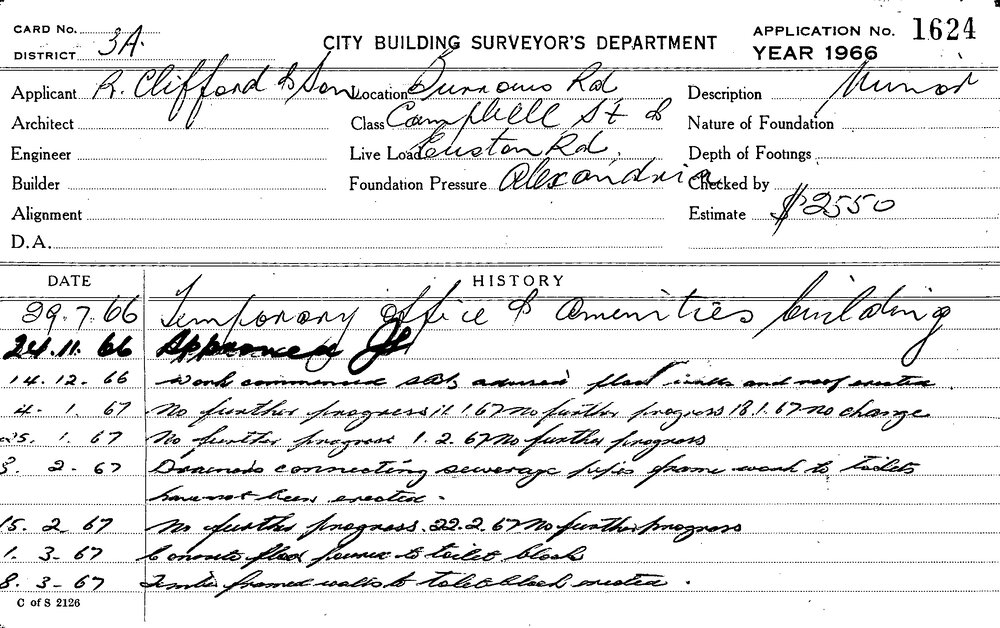 CARD No.
DISTRICT 3A.
CITY BUILDING SURVEYOR'S DEPARTMENT
APPLICATION No. 1624
YEAR 1966
Applicant R. Clifford & Son Location Burrows Rd Description Minor
Architect Class Campbell St & Nature of Foundation
Engineer Live Load Euston Rd. Depth of Footings
Builder Foundation Pressure Alexandria Checked by
Alignment Estimate $2550
D.A.
DATE HISTORY
29.7.66 Temporary office & amenities building
24.11.66 Approved
14.12.66 work commenced floor walls and roof erected.
4.1.67 No further progress 11.1.67 No further progress 18.1.67 no change
25.1.67 No further progress 1.2.67 No further progress
3.2.67 connecting sewerage pipes frame work to toilets
have not been erected.
15.2.67 No further progress. 22.2.67 No further progress
1.3.67 Concrete floor poured to toilet block
8.3.67 Timber framed walls to toilet block erected.
C of S 2126